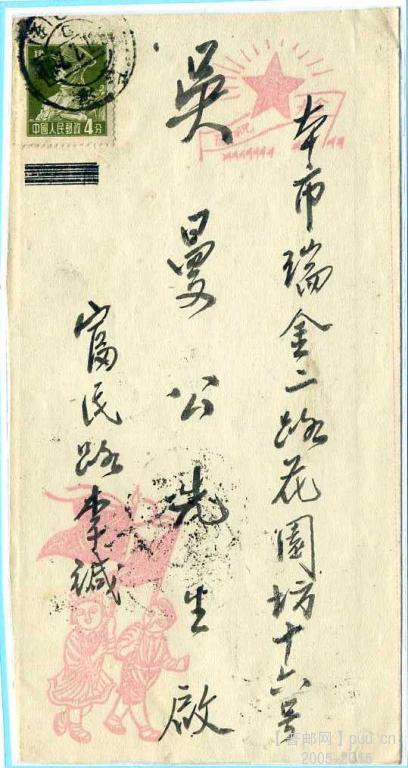 本市瑞金二路花園坊十六号
吴曼公先生啟
富民路李緘
中國人民郵政4分
【普邮网】puu.cn
2005-2015